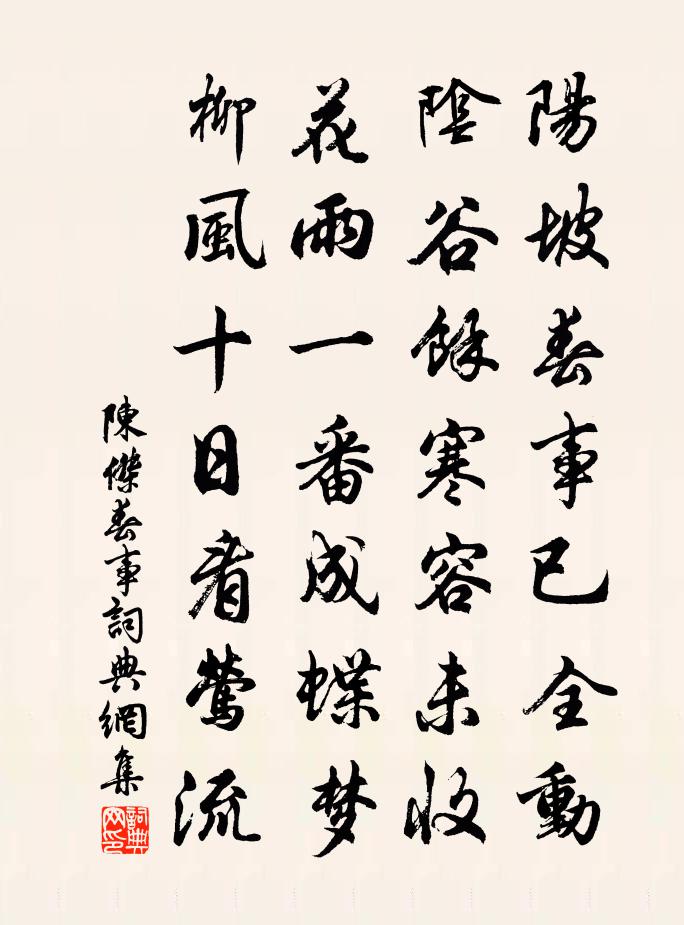 陽坡春事已全動
陰谷餘寒容未收
花雨一番成蝶梦
柳風十日看鶯流
陳傑春事詞典網集
詞典
网印